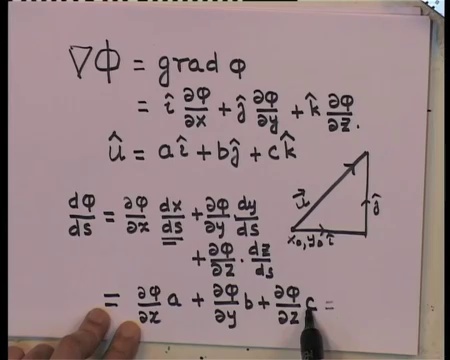 ∇Φ = grad φ
= î ∂φ/∂x + ĵ ∂φ/∂y + k̂ ∂φ/∂z.
û = aî + bĵ + ck̂
dφ/ds = ∂φ/∂x dx/ds + ∂φ/∂y dy/ds
+ ∂φ/∂z . dz/ds
= ∂φ/∂x a + ∂φ/∂y b + ∂φ/∂z c =
u⃗
ĵ
x₀, y₀ î